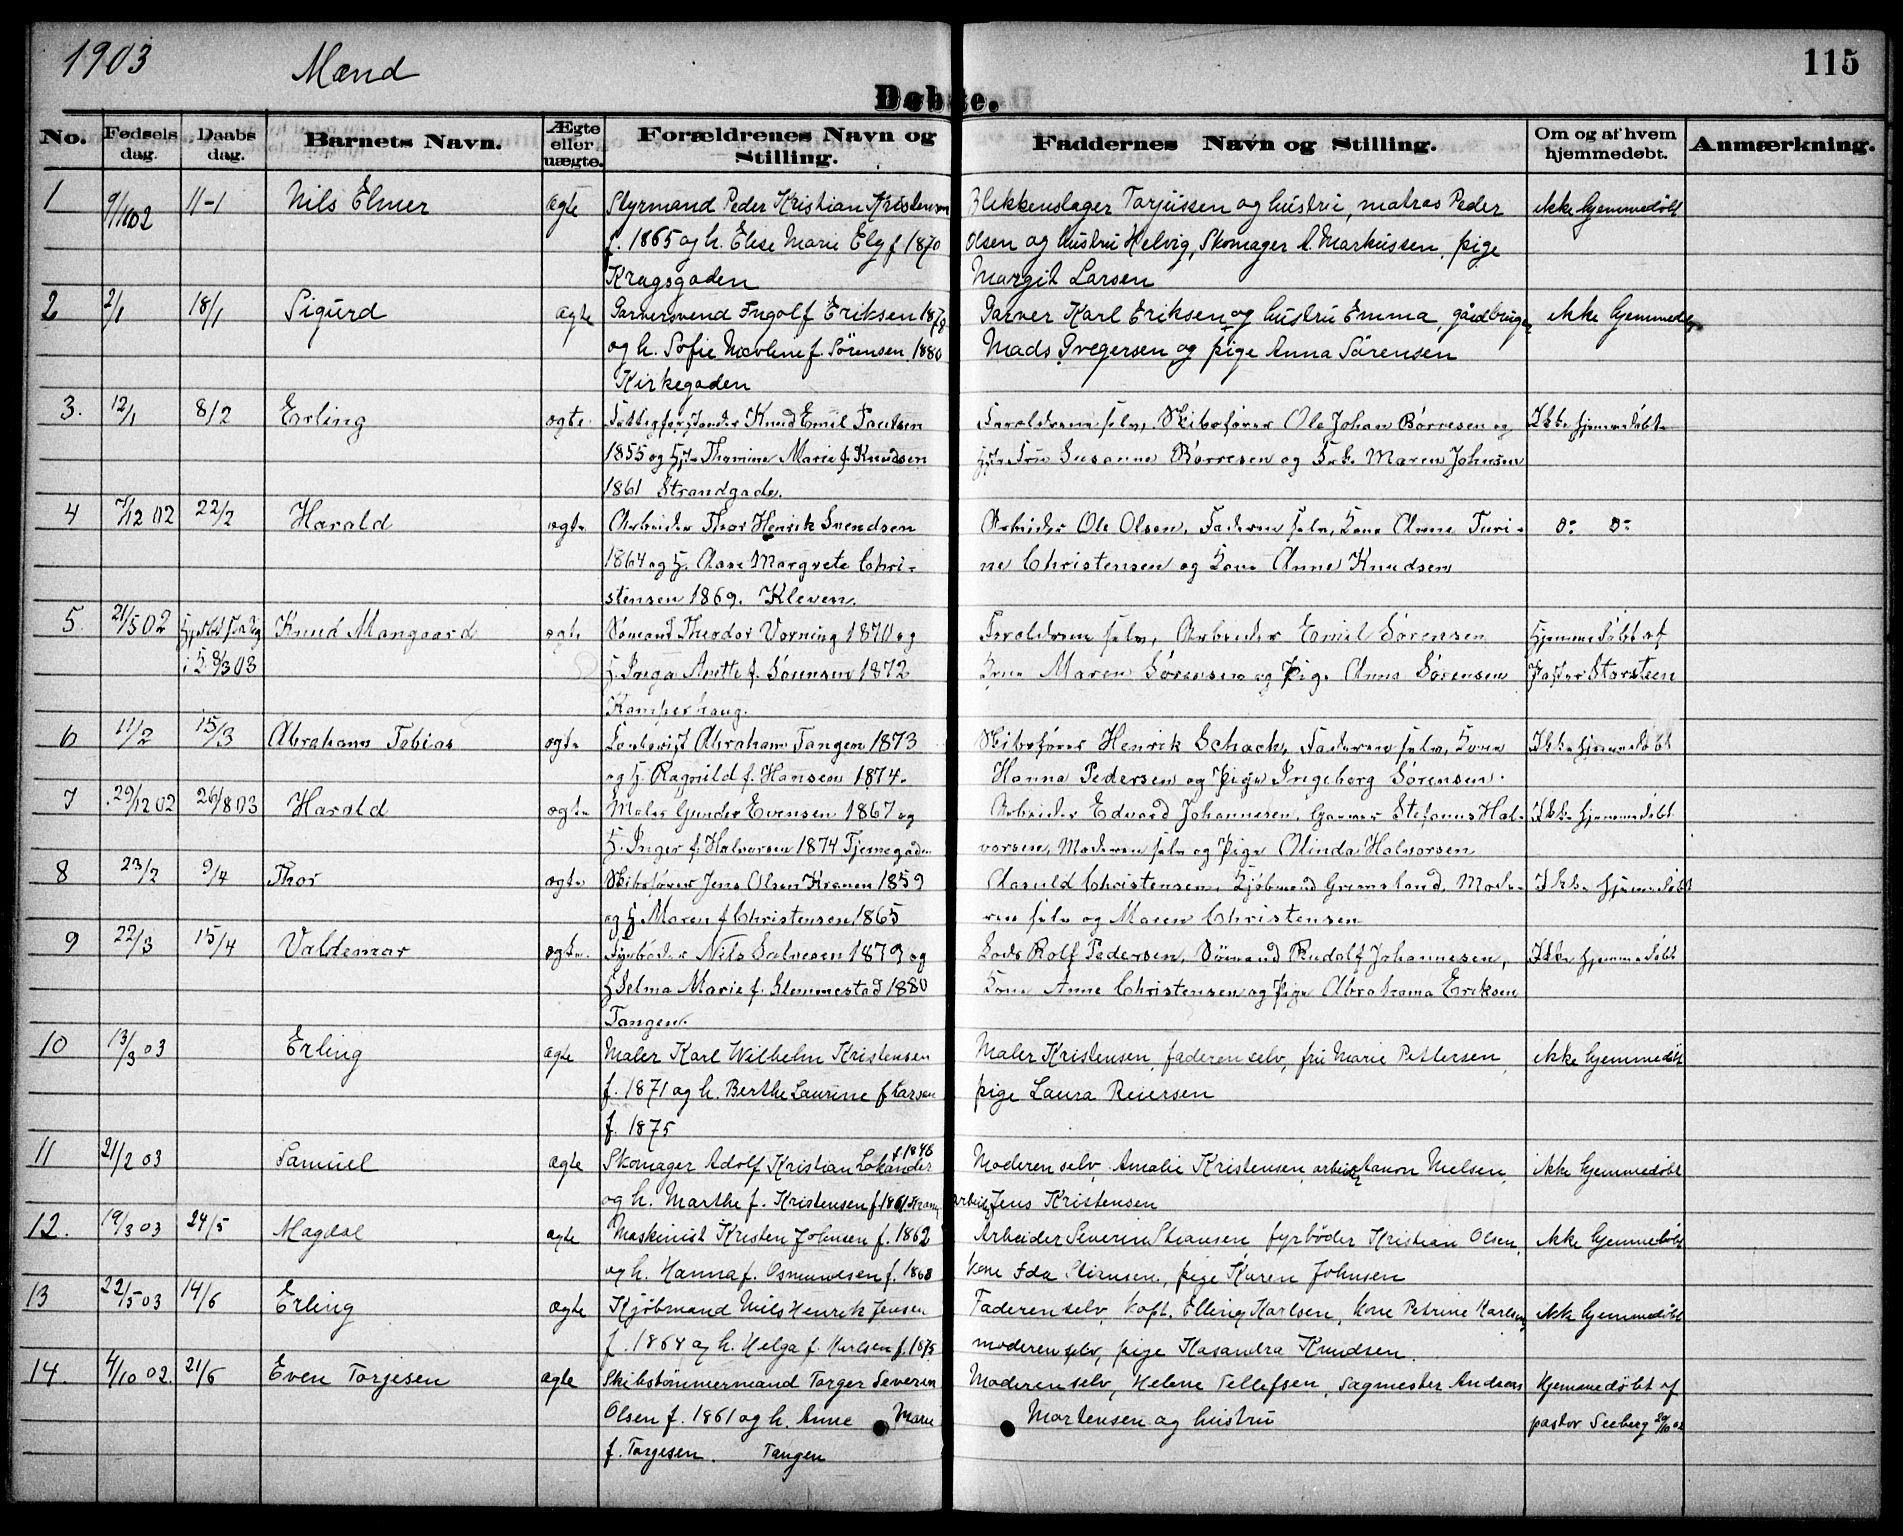 1903
Mænd
115
Døbte.
No. Fødsels dag. Daabs dag. Barnets Navn. Ægte eller uægte. Forældrenes Navn og Stilling. Faddernes Navn og Stilling. Om og af hvem hjemmedøbt. Anmærkning.
1 9/1002 11-1 Nils Elmer ægte Styrmand Peder Kristian Kristensen Blikkenslager Tarjussen og hustru, matros Peder ikke hjemmedøbt
f. 1865 og h. Elise Marie Elg f 1870 Olsen og hustru Helvig, Skomager A. Markussen, pige
Kragsgaden Margit Larsen
2 2/1 18/1 Sigurd ægte Garversvend Ingolf Eriksen 1878 Garver Karl Eriksen og hustru Emma, gårdbruger ikke hjemmedøb
og h. Sofie f. Sörensen, 1880 Mads Gregersen og pige Anna Sörensen
Kirkegaden
3. 12/1 8/2 Erling ægte. Fattigforstander Knud Emil Poulsen Forældrene selv, Skibsfører Ole Johan Børresen og Ikke hjemmedøbt
1855 og Thomine Marie f. Knudsen Susanne Børresen og Frk. Maren Johnsen
1861 Strandgade.
4 7/12 02 22/2 Harald ægte Arbeider Thor Henrik Svendsen Arbeider Ole Olsen, Faderen selv, Kone Anne Turi- do do
1864 og H. Aase Margrete Chri- ne Christensen og Kone Anne Knudsen
stensen 1869. Kleven.
5. 21/5 02 i K 8/3 03 Knud Mangaard ægte Sømand Theodor Vorning 1870 og Forældrene selv, Arbeider Emil Sørensen Hjemmedøbt af
H. Inga Anette f. Sørensen 1872 Kone Maren Sørensen og Pige Anna Sørensen Pastor Storsteen
Kamperhaug.
6 11/2 15/3 Abraham Tobias ægte Abraham Tangen 1873 Skibsfører Henrik Schach, Faderen selv, Kone Ikke hjemmedøbt
og H. Ragnild f. Hansen 1874. Hanna Pedersen og Pige Ingeborg Sørensen.
7 29/12 02 26/8 03 Harald ægte Maler Gunder Evensen 1867 og Arbeider Edvard Johannesen, Garver Stefanus Hal- Ikke hjemmedøbt
H. Inger f. Halvorsen 1874 Tjernegaden vorsen, Moderen selv og Pige Olinda Halvorsen
8 23/2 9/4 Thor ægte Skibsfører Jens Olsen Kranen 1859 Christensen, Kjøbmand Grimsland, Mode- Ikke hjemmedøbt
og H. Maren f Christensen 1865 ren selv og Maren Christensen
9 22/3 15/4 Valdemar ægte. Fyrbøder Nils Salvesen 1879 og Lods Rolf Pedersen, Sømand Rudolf Johannesen, Ikke hjemmedøbt
H Selma Marie f. Slemmestad 1880 Kone Anne Christensen og Pige Abrahama Eriksen
Tangen.
10 13/3 03 Erling ægte Maler Karl Wilhelm Kristensen Maler Kristensen, faderen selv, fru Marie Pettersen, ikke hjemmedøbt
f. 1871 og h. Berthe Laurine f Larsen pige Laura Reiersen
f. 1875
11 21/2 03 Samuel ægte Skomager Adolf Kristian Lokander f. 1846 Moderen selv, Amalie Kristensen, arbeider Aanon Nielsen, ikke hjemmedøbt
og h. Marthe f. Kristensen f 1861 arbeider Jens Kristensen
12. 19/3 03 24/5 Magdal ægte Maskinist Kristen Johnsen f. 1862 Arbeider Severin Stiansen, fyrbøder Kristian Olsen, ikke hjemmedøbt
og h. Hanna f. Osmundsen f. 1868 kone Ida Stiensen, pige Karen Johnsen
13 22/5 03 14/6 Erling ægte Kjøbmand Nils Henrik Jensen Faderen selv, kapt. Elling Karlsen, kone Petrine Karlsen, ikke hjemmedøbt
f. 1864 og h. Helga f. Karlsen f. 1875 moderen selv, pige Kasandra Knudsen.
14. 4/10 02. 21/6 Even Torjesen ægte Skibstømmermand Torger Severin Moderen selv, Helene Tellefsen, Sagmester Andreas Hjemmedøbt af
Olsen f. 1861 og h. Anne Marie Mortensen og hustru pastor Seeberg 20/10 02
f. Torgesen. Tangen